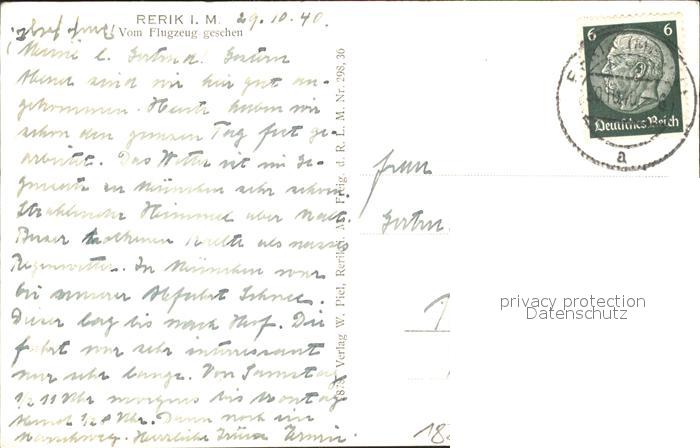 RERIK I. M. 29.10.40.
Vom Flugzeug gesehen
Meine l. Gertrud! Gestern
Abend sind wir hier gut an-
gekommen. Heute haben wir
schon den ganzen Tag fest ge-
arbeitet. Das Wetter ist im Ge-
gensatz zu München sehr schön.
Strahlender Himmel aber kalt.
Besser trockene Kälte als nasses
Regenwetter. In München war
bei unserer Abfahrt Schnee.
Dieser lag bis nach Hof. Die
Fahrt war sehr interessant
nur sehr lange. Von Samstag
1/2 11 Uhr morgens bis Montag
Abend 1/2 8 Uhr. Dann noch ein
Marschweg. Herzliche Grüsse
1878 Verlag W. Piel, Rerik i. M. Freig. d. R. L. M. Nr. 298. 36
6 6
Deutsches Reich
a
Frau
privacy protection
Datenschutz